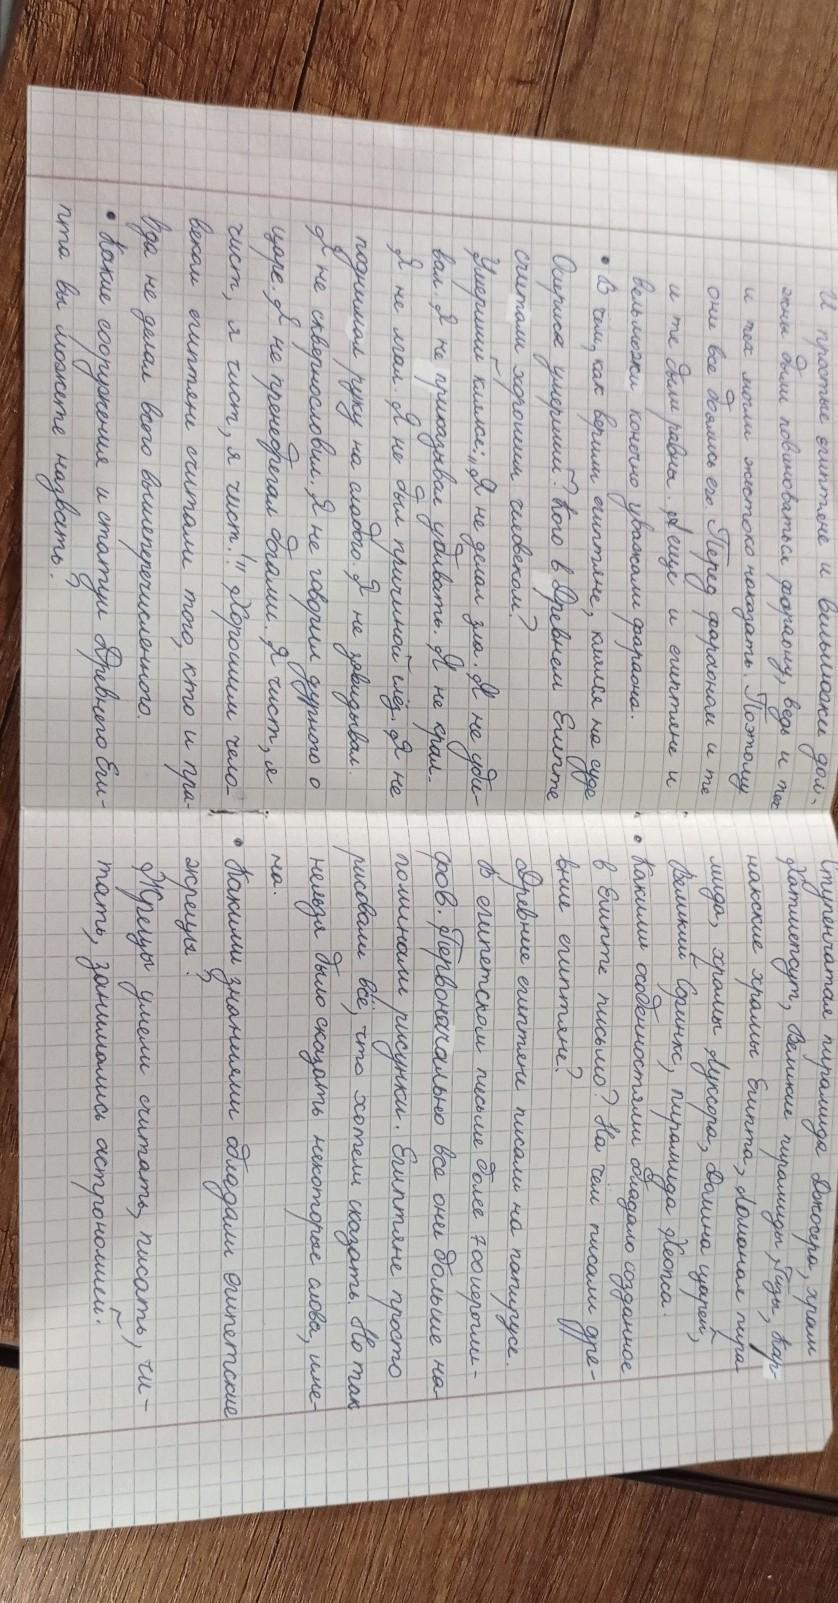 И простые египтяне и вельможи дол-
жны были повиноваться фараону, ведь и тех
и тех могли жестоко наказать. Поэтому
они все боялись его. Перед фараоном и те
и те были равны. А еще и египтяне и
вельможи конечно уважали фараона.
• В чем, как верили египтяне, клялся на суде
Осириса умерший? Кого в Древнем Египте
считали хорошим человеком?
Умерший клялся: „Я не делал зла. Я не уби-
вал. Я не приказывал убивать. Я не крал.
Я не лгал. Я не был причиной слёз. Я не
поднимал руку на слабого. Я не завидывал.
Я не сквернословил. Я не говорил дурного о
царе. Я не пренебрегал богами. Я чист, я
чист, я чист, я чист!" Хорошим чело-
веком египтяне считали того, кто и пра-
вда не делал всего вышеперечисленного.
• Какие сооружения и статуи Древнего Еги-
пта вы можете назвать?
Ступенчатая пирамида Джосера, храм
Хатшепсут, Великие пирамиды Гизы, Кар-
накские храмы Египта, Ломаная пира-
мида, храмы Луксора, Долина царей,
Великий Сфинкс, пирамида Хеопса.
• Какими особенностями обладало созданное
в Египте письмо? На чём писали дре-
вние египтяне?
Древние египтяне писали на папирусе.
В египетском письме более 700 иерогли-
фов. Первоначально все они больше на-
поминали рисунки. Египтяне просто
рисовали всё, что хотели сказать. Но так
нельзя было сказать некоторые слова, име-
на.
• Какими знаниями обладали египетские
жрецы?
Жрецы умели считать, писать, чи-
тать, занимались астрономией.